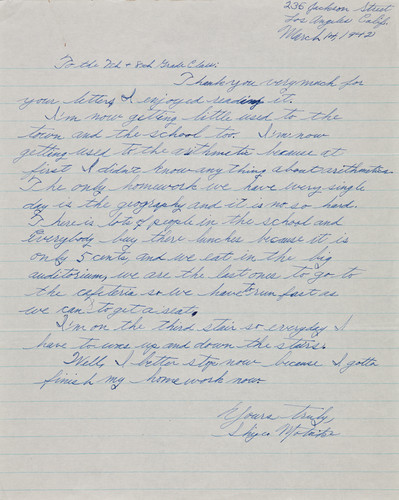 236 Jackson Street
Los Angeles Calif.
March 14, 1942
To the 7th & 8th Grade Class:
Thank you very much for
your letters I enjoyed reading it.
I'm now getting little used to the
town and the school too. I'm now
getting used to the arithmatic because at
first I didn't know any thing about arithmatic.
The only homework we have every single
day is the geography and it is no so hard.
There is lots of people in the school and
everybody buy there lunches because it is
only 5 cents, and we eat in the big
auditorium, we are the last ones to go to
the cafeteria so we have to run fast as
we can to get a seat.
I'm on the third stair so everyday I
have to up and down the stairs.
Well, I better stop now because I gotta
finish my home work now.
Yours truly,